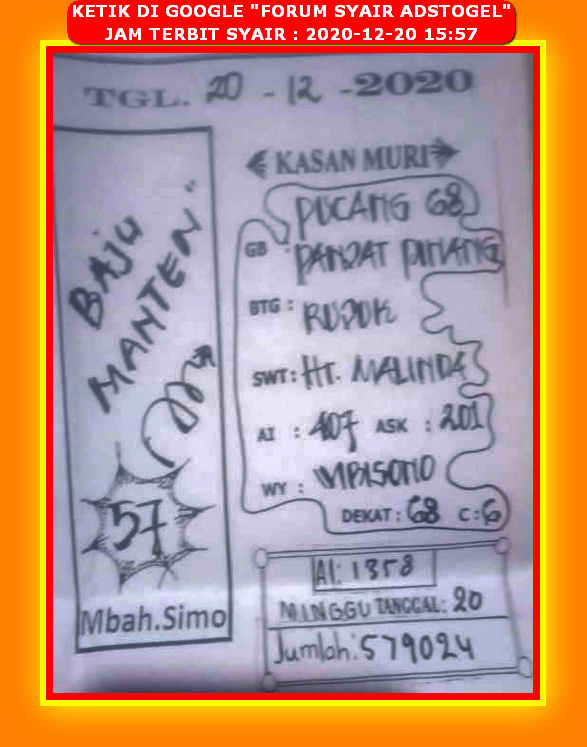 KETIK DI GOOGLE "FORUM SYAIR ADSTOGEL"
JAM TERBIT SYAIR : 2020-12-20 15:57
TGL. 20 - 12 - 2020
BAJU
MANTEN"
57
Mbah.Simo
KASAN MURI
PUCANG 68
GB : PANJAT PINANG
BTG : RUJUK
SWT : HT. MALINDA
AI : 407 ASK : 201
WY :
DEKAT : 68 C : 6
AI: 1358
MINGGU TANGGAL: 20
Jumlah: 579024